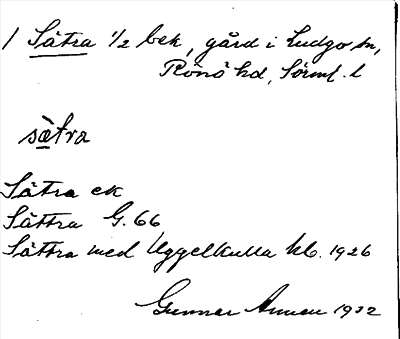 1 Sätra 1/2 bek, gård i Ludgo sn,
Rönö hd, Sörml. l
sätra
Sätra ek
Sättra G. 66
Sättra med Uggelkulla hb. 1926
Gunnar 1932